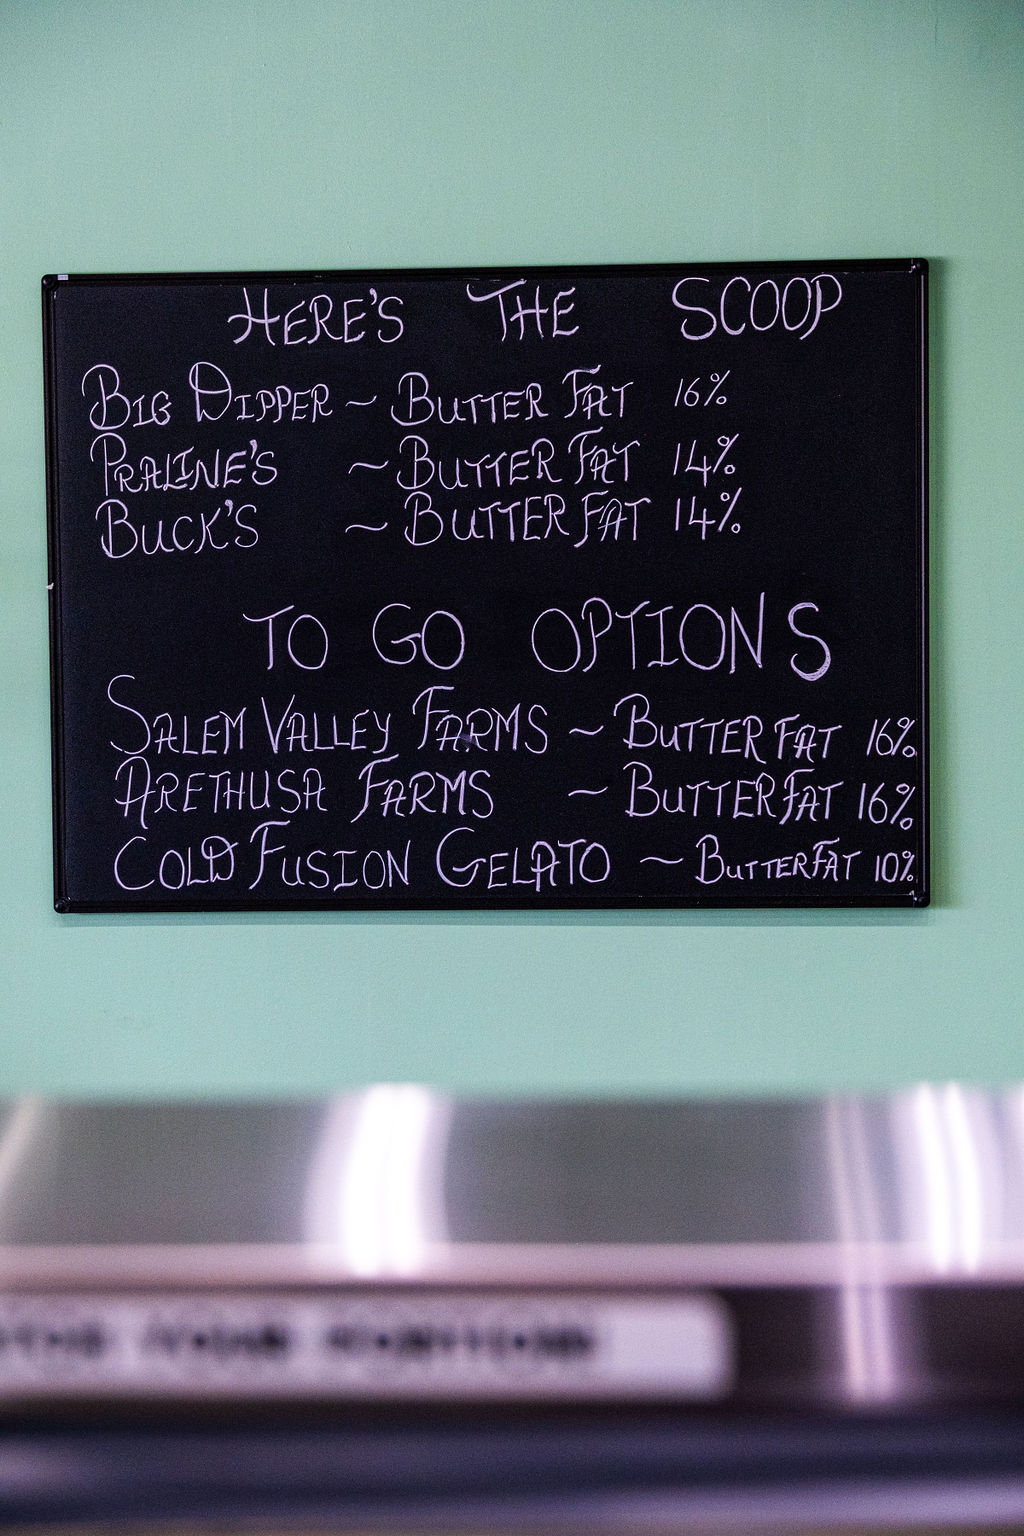 HERE'S THE SCOOP
BIG DIPPER ~ BUTTER FAT 16%
PRALINE'S ~ BUTTER FAT 14%
BUCK'S ~ BUTTER FAT 14%
TO GO OPTIONS
SALEM VALLEY FARMS ~ BUTTER FAT 16%
ARETHUSA FARMS ~ BUTTER FAT 16%
COLD FUSION GELATO ~ BUTTERFAT 10%